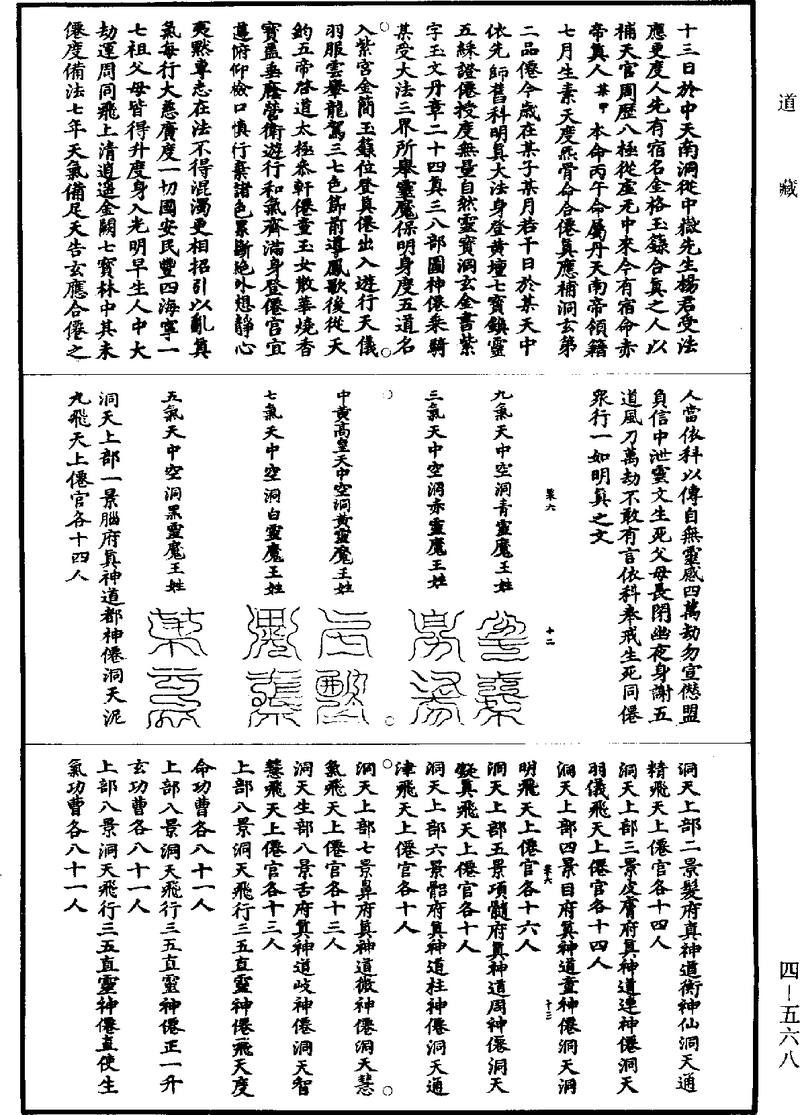 道藏
十三日於中天南洞從中嶽先生楊君受法
應更度人先有宿名金格玉籙合真之人以
補天官周歷八極從虛无中來今有宿命赤
帝真人某甲本命丙午命屬丹天南帝領籍
七月生素天度炁骨命合僊真應補洞玄第
二品僊今歲在某子某月若干日於某天中
依先師舊科明真大法身登黃壇七寶鎮靈
五綵證僊授度無量自然靈寶洞玄金書紫
字玉文丹章二十四真三八部圖神僊乘騎
某受大法三界所舉靈魔保明身度五道名
入紫宮金簡玉籙位登真僊出入遊行天儀
羽服雲轝龍駕三七色節前導鳳歌後從天
鈞五帝啓道太極參軒僊童玉女散華燒香
寶蓋垂蔭營衛遊行和氣齊滿身登僊宮宜
遵俯仰檢口慎行棄諸色累斷絕外想靜心
夷默專志在法不得混濁更相招引以亂真
氣每行大慈廣度一切國安民豐四海寧一
七祖父母皆得升度身入光明早生人中大
劫運周同飛上清逍遙金闕七寶林中其未
僊度備法七年天氣備足天告玄應合僊之
人當依科以傳自無靈感四萬劫勿宣愆盟
負信中泄靈文生死父母長閉幽夜身謝五
道風刀萬劫不敢有言依科奉戒生死同僊
衆行一如明真之文
九氣天中空洞青靈魔王姓
三氣天中空洞赤靈魔王姓
中黃高皇天中空洞黃靈魔王姓
七氣天中空洞白靈魔王姓
五氣天中空洞黑靈魔王姓
洞天上部一景腦府真神道都神僊洞天泥
丸飛天上僊官各十四人
洞天上部二景髮府真神道衡神仙洞天通
精飛天上僊官各十四人
洞天上部三景皮膚府真神道連神僊洞天
羽儀飛天上僊官各十四人
洞天上部四景目府真神道童神僊洞天洞
明飛天上僊官各十六人
洞天上部五景項髓府真神道周神僊洞天
凝真飛天上僊官各十人
洞天上部六景髂府真神道柱神僊洞天通
津飛天上僊官各十人
洞天上部七景鼻府真神道微神僊洞天慧
氣飛天上僊官各十三人
洞天生部八景舌府真神道歧神僊洞天智
慧飛天上僊官各十三人
上部八景洞天飛行三五直靈神僊一飛天度
命功曹各八十一人
上部八景洞天飛行三五直靈神僊正一升
玄功曹各八十一人
上部八景洞天飛行三五直靈神僊直使生
氣功曹各八十一人
四－五六八